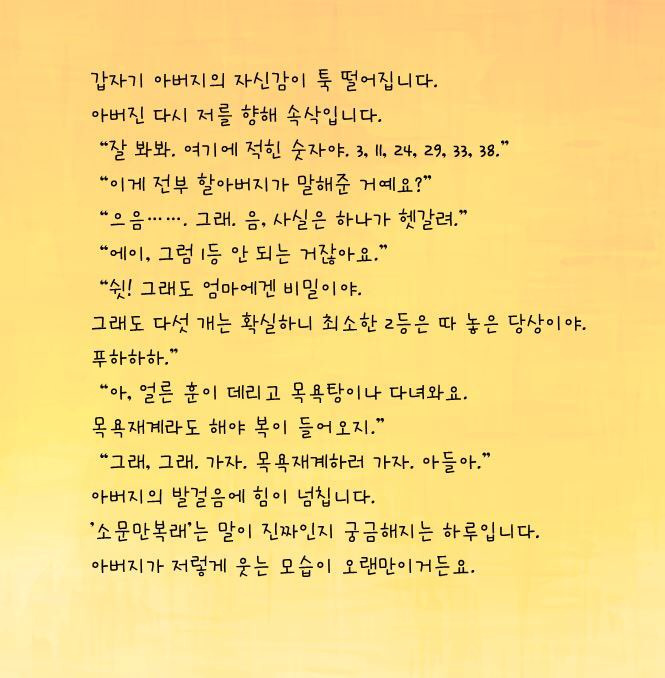 갑자기 아버지의 자신감이 툭 떨어집니다.
아버진 다시 저를 향해 속삭입니다.
“잘 봐봐. 여기에 적힌 숫자야. 3, 11, 24, 29, 33, 38.”
“이게 전부 할아버지가 말해준 거예요?”
“으음……. 그래. 음, 사실은 하나가 헷갈려.”
“에이, 그럼 1등 안 되는 거잖아요.”
“쉿! 그래도 엄마에겐 비밀이야.
그래도 다섯 개는 확실하니 최소한 2등은 따 놓은 당상이야.
푸하하하.”
“아, 얼른 훈이 데리고 목욕탕이나 다녀와요.
목욕재계라도 해야 복이 들어오지.”
“그래, 그래. 가자. 목욕재계하러 가자. 아들아.”
아버지의 발걸음에 힘이 넘칩니다.
’소문만복래’는 말이 진짜인지 궁금해지는 하루입니다.
아버지가 저렇게 웃는 모습이 오랜만이거든요.